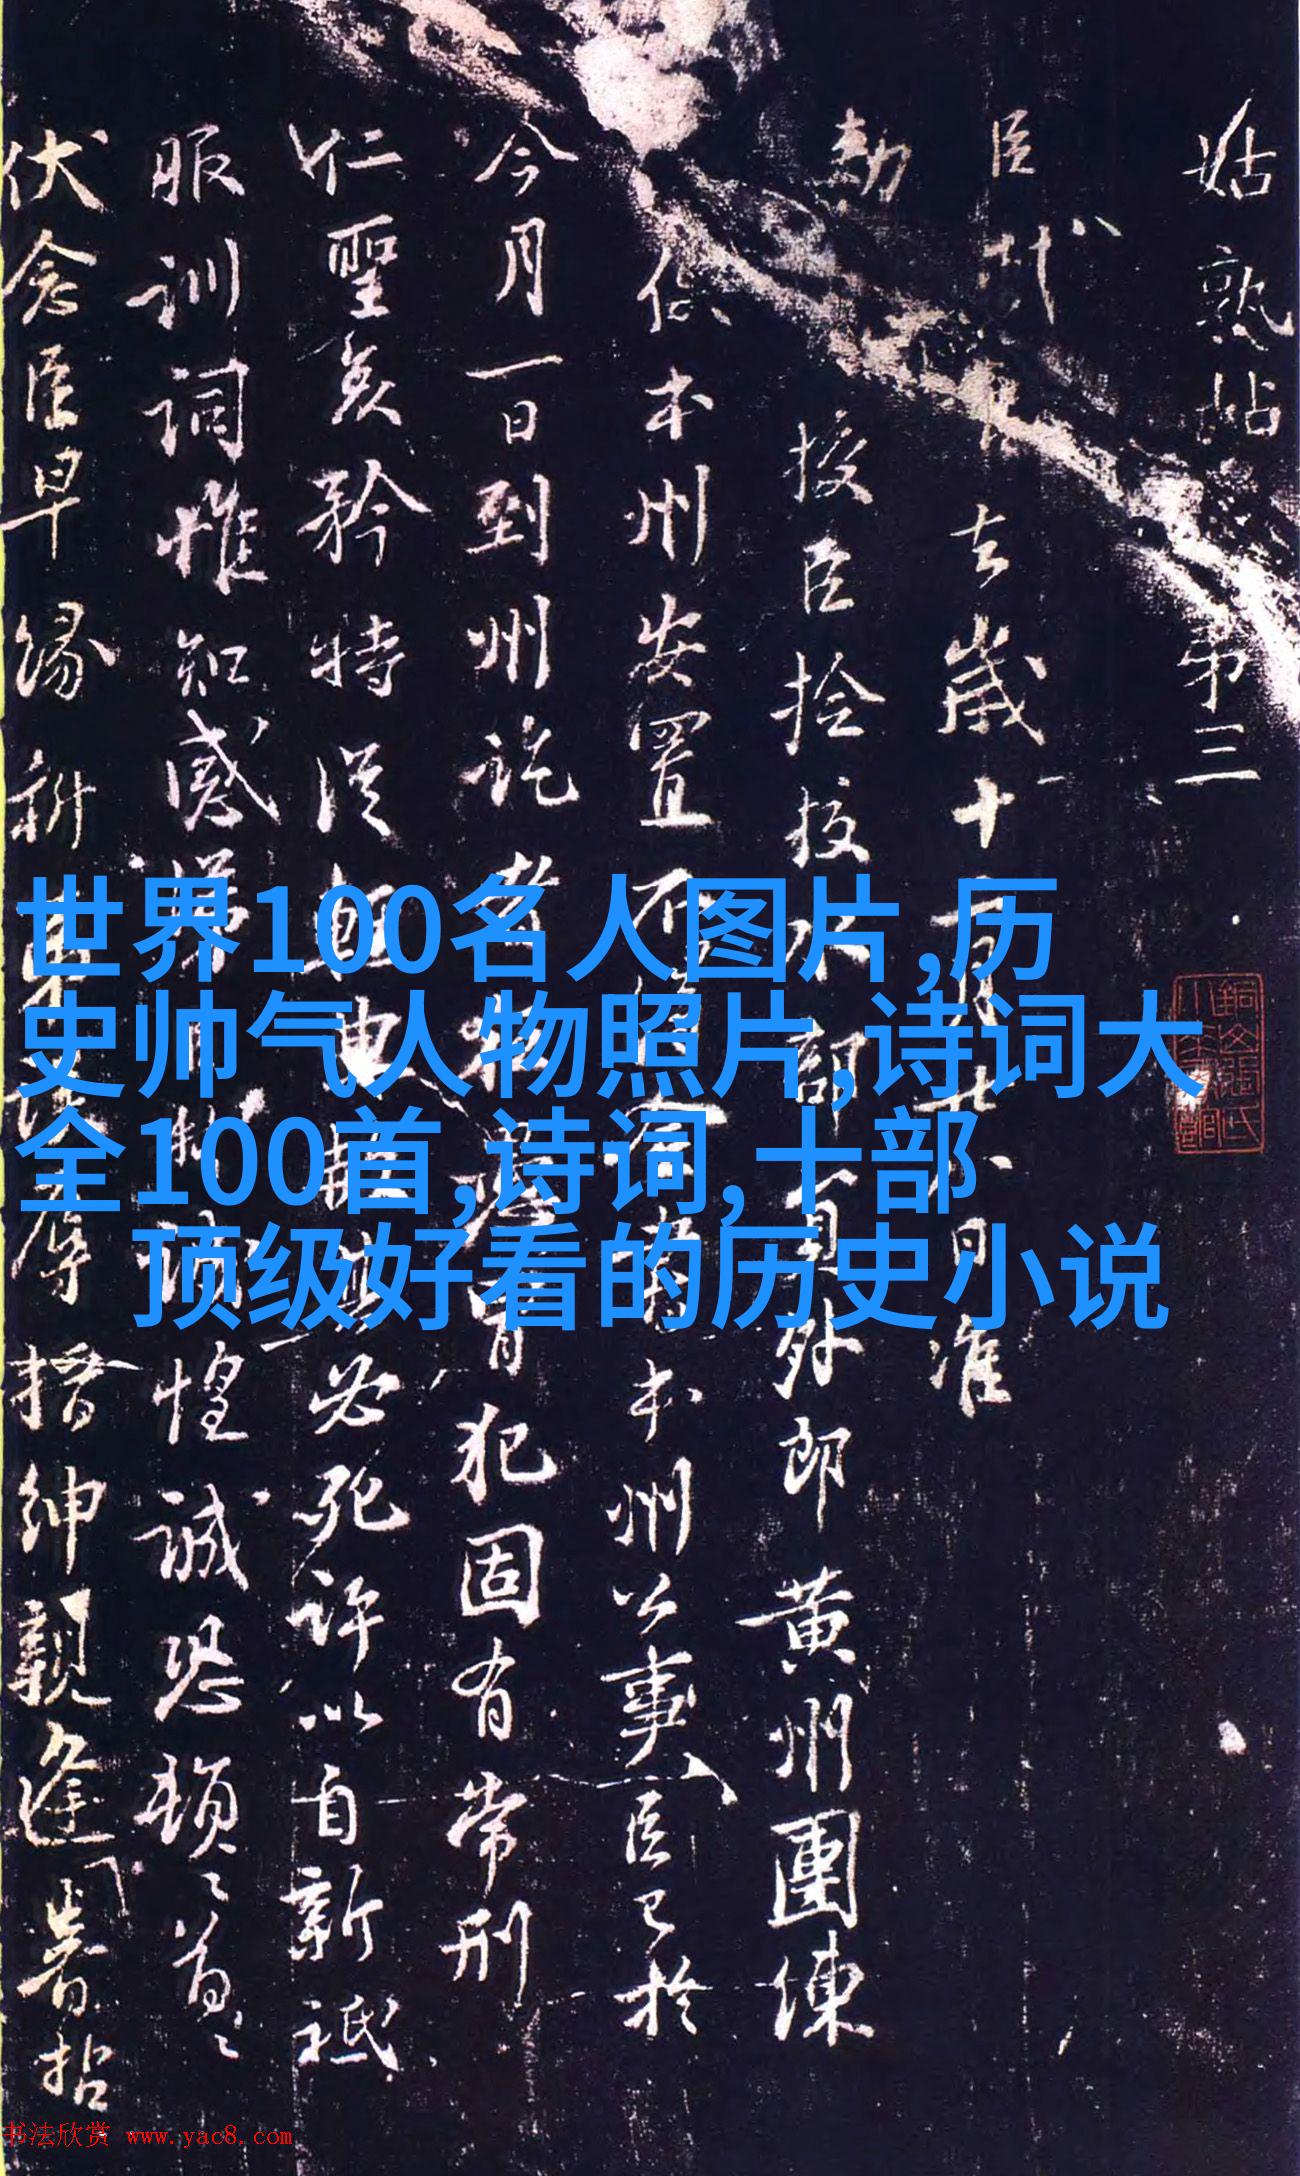 姑熟帖 第三
臣軾言去歲十二月廿八日准
敕
授臣捡挍水部員外郎黄州團練
使本州安置不得本州公事臣已於
今月一日到州訖者狂犯固有常刑
仁聖哀矜特從輕典必死許以自新祗
服訓詞惟知感涕惶誠恐頓〻首〻
伏念臣早縁科搢紳親逢睿哲
世界100名人图片,历
史帅气人物照片,诗词大
全100首,诗词,十部
顶级好看的历史小说
书法欣赏 www.yac8.com